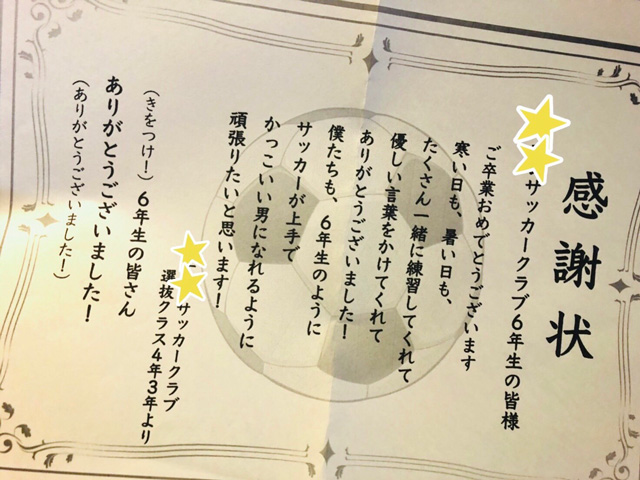 感謝状
サッカークラブ6年生の皆様
ご卒業おめでとうございます
寒い日も、暑い日も、
たくさん一緒に練習してくれて
優しい言葉をかけてくれて
ありがとうございました!
僕たちも、6年生のように
サッカーが上手で
かっこいい男になれるように
頑張りたいと思います!
サッカークラブ
選抜クラス4年3年より
(きをつけ!)6年生の皆さん
ありがとうございました!
(ありがとうございました!)